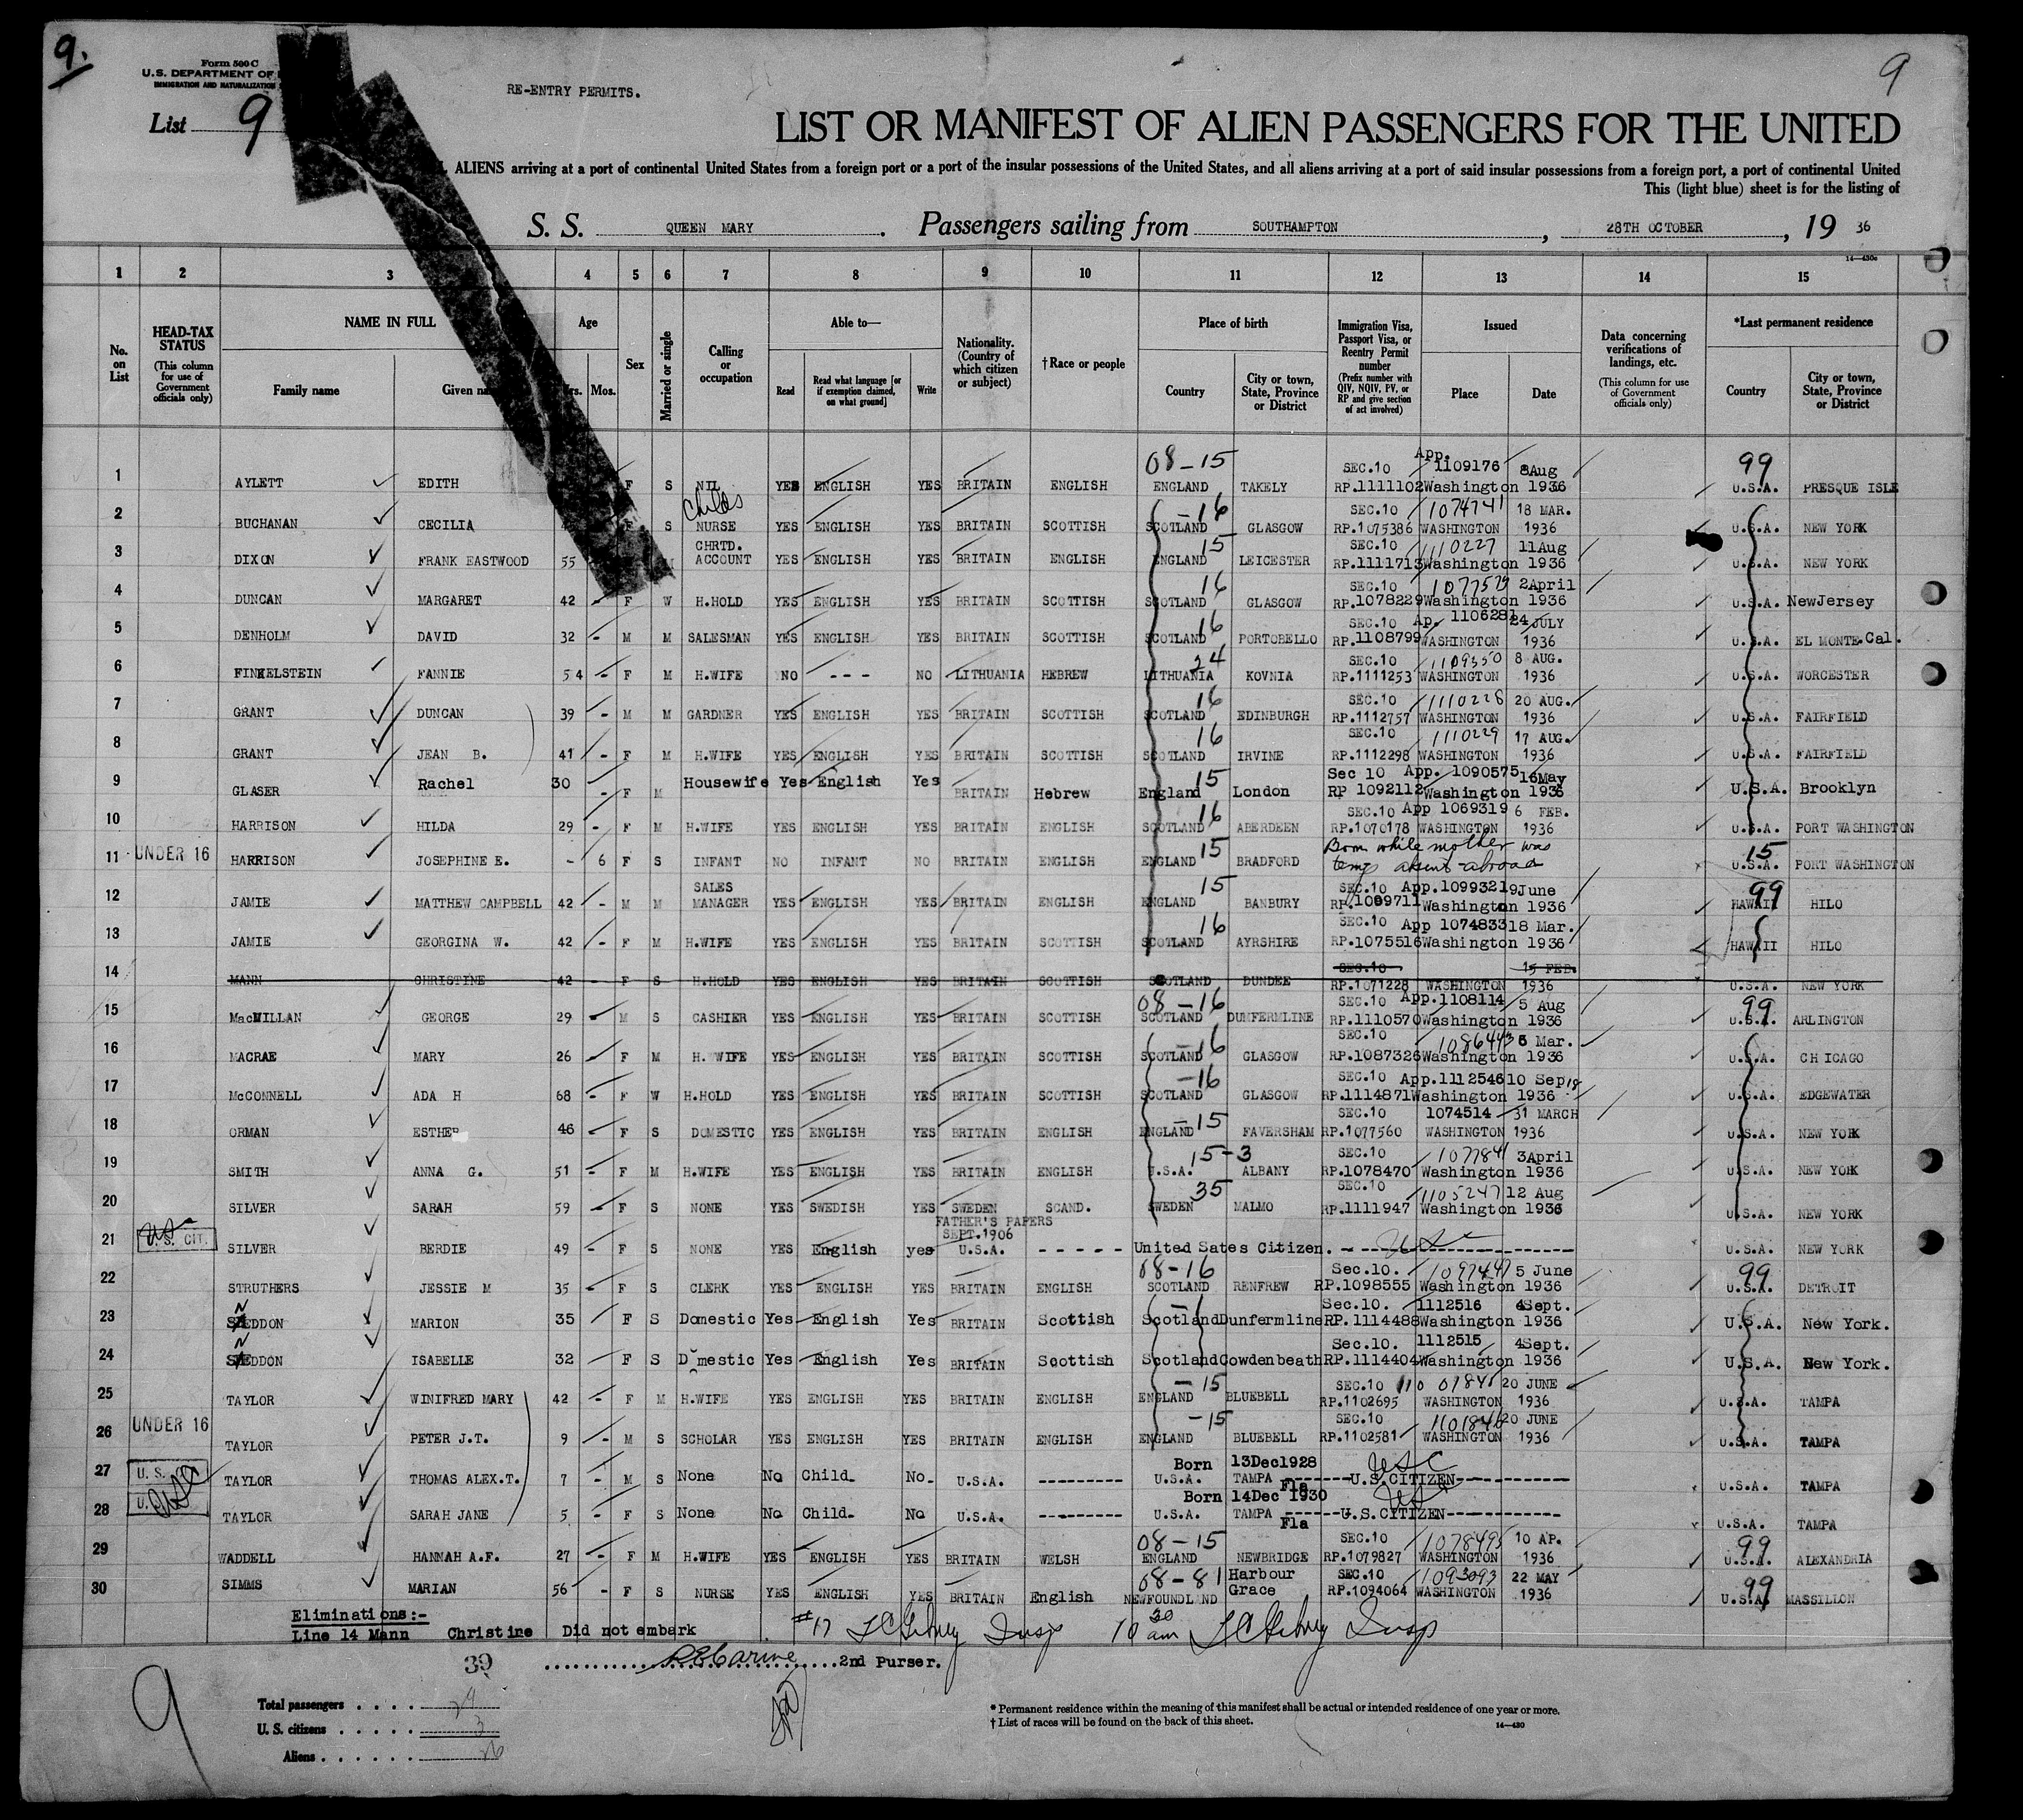 9.
9
Form 500 C
U.S. DEPARTMENT OF
IMMIGRATION AND NATURALIZATION
List 9
RE-ENTRY PERMITS.
LIST OR MANIFEST OF ALIEN PASSENGERS FOR THE UNITED
ALIENS arriving at a port of continental United States from a foreign port or a port of the insular possessions of the United States, and all aliens arriving at a port of said insular possessions from a foreign port, a port of continental United
This (light blue) sheet is for the listing of
S. S. QUEEN MARY. Passengers sailing from SOUTHAMPTON, 28TH OCTOBER, 19 36
14—430c
1 2 3 4 5 6 7 8 9 10 11 12 13 14 15
No. on List
HEAD-TAX STATUS (This column for use of Government officials only)
NAME IN FULL
Family name
Given
Age
Mos.
Sex
Married or single
Calling or occupation
Able to—
Read
Read what language [or if exemption claimed, on what ground]
Write
Nationality. (Country of which citizen or subject)
†Race or people
Place of birth
Country
City or town, State, Province or District
Immigration Visa, Passport Visa, or Reentry Permit number (Prefix number with QIV, NQIV, PV, or RP and give section of act involved)
Issued
Place
Date
Data concerning verifications of landings, etc. (This column for use of Government officials only)
*Last permanent residence
Country
City or town, State, Province or District
1 AYLETT EDITH F S NIL YES ENGLISH YES BRITAIN ENGLISH 08-15 ENGLAND TAKELY SEC.10 RP.1111102 App. 1109176 Washington 8Aug 1936 99 U.S.A. PRESQUE ISLE
2 BUCHANAN CECILIA F S Childs NURSE YES ENGLISH YES BRITAIN SCOTTISH -16 SCOTLAND GLASGOW SEC.10 RP.1075386 1074741 WASHINGTON 18 MAR. 1936 U.S.A. NEW YORK
3 DIXON FRANK EASTWOOD 55 M CHRTD. ACCOUNT YES ENGLISH YES BRITAIN ENGLISH 15 ENGLAND LEICESTER SEC.10 RP.1111713 1110227 Washington 11Aug 1936 U.S.A. NEW YORK
4 DUNCAN MARGARET 42 - F W H.HOLD YES ENGLISH YES BRITAIN SCOTTISH 16 SCOTLAND GLASGOW SEC.10 RP.1078229 1077579 Washington 2April 1936 U.S.A. NewJersey
5 DENHOLM DAVID 32 - M M SALESMAN YES ENGLISH YES BRITAIN SCOTTISH 16 SCOTLAND PORTOBELLO SEC.10 RP.1108799 Ap. 1106281 WASHINGTON 24 JULY 1936 U.S.A. EL MONTE.Cal.
6 FINKELSTEIN FANNIE 54 - F M H.WIFE NO --- NO LITHUANIA HEBREW 24 LITHUANIA KOVNIA SEC.10 RP.1111253 1109350 WASHINGTON 8 AUG. 1936 U.S.A. WORCESTER
7 GRANT DUNCAN 39 - M M GARDNER YES ENGLISH YES BRITAIN SCOTTISH 16 SCOTLAND EDINBURGH SEC.10 RP.1112757 1110228 WASHINGTON 20 AUG. 1936 U.S.A. FAIRFIELD
8 GRANT JEAN B. 41 - F M H.WIFE YES ENGLISH YES BRITAIN SCOTTISH 16 SCOTLAND IRVINE SEC.10 RP.1112298 1110229 WASHINGTON 17 AUG. 1936 U.S.A. FAIRFIELD
9 GLASER Rachel 30 - F M Housewife Yes English Yes BRITAIN Hebrew 15 England London Sec 10 RP 1092112 App. 1090575 Washington 16May 1936 U.S.A. Brooklyn
10 HARRISON HILDA 29 - F M H.WIFE YES ENGLISH YES BRITAIN ENGLISH 16 SCOTLAND ABERDEEN SEC.10 RP.1070178 App 1069319 WASHINGTON 6 FEB. 1936 U.S.A. PORT WASHINGTON
11 UNDER 16 HARRISON JOSEPHINE E. - 6 F S INFANT NO INFANT NO BRITAIN ENGLISH 15 ENGLAND BRADFORD Born while mother was temp absent abroad 15 U.S.A. PORT WASHINGTON
12 JAMIE MATTHEW CAMPBELL 42 - M M SALES MANAGER YES ENGLISH YES BRITAIN ENGLISH 15 ENGLAND BANBURY SEC.10 RP.1009711 App.1099321 Washington 9June 1936 99 HAWAII HILO
13 JAMIE GEORGINA W. 42 - F M H.WIFE YES ENGLISH YES BRITAIN SCOTTISH 16 SCOTLAND AYRSHIRE SEC.10 RP.1075516 App 1074833 Washington 18 Mar. 1936 HAWAII HILO
14 MANN CHRISTINE 42 - F S H.HOLD YES ENGLISH YES BRITAIN SCOTTISH SCOTLAND DUNDEE SEC.10 RP.1071228 WASHINGTON 15 FEB. 1936 U.S.A. NEW YORK
15 MacMILLAN GEORGE 29 - M S CASHIER YES ENGLISH YES BRITAIN SCOTTISH 08-16 SCOTLAND DUNFERMLINE SEC.10 RP.1110570 App.1108114 Washington 5 Aug 1936 99 U.S.A. ARLINGTON
16 MACRAE MARY 26 - F M H. WIFE YES ENGLISH YES BRITAIN SCOTTISH -16 SCOTLAND GLASGOW SEC.10 RP.1087326 Washington Mar. 1936 U.S.A. CHICAGO
17 McCONNELL ADA H 68 - F W H.HOLD YES ENGLISH YES BRITAIN SCOTTISH -16 SCOTLAND GLASGOW SEC.10 RP.1114871 App.1112546 Washington 10 Sep 1936 U.S.A. EDGEWATER
18 ORMAN ESTHER 46 - F S DOMESTIC YES ENGLISH YES BRITAIN ENGLISH -15 ENGLAND FAVERSHAM SEC.10 RP.1077560 1074514 WASHINGTON 31 MARCH 1936 U.S.A. NEW YORK
19 SMITH ANNA G. 51 - F M H.WIFE YES ENGLISH YES BRITAIN ENGLISH 15-3 U.S.A. ALBANY SEC.10 RP.1078470 107784 Washington 3April 1936 U.S.A. NEW YORK
20 SILVER SARAH 59 - F S NONE YES SWEDISH YES SWEDEN SCAND. 35 SWEDEN MALMO SEC.10 RP.1111947 1105247 Washington 12 Aug 1936 U.S.A. NEW YORK
21 U.S. CIT. SILVER BERDIE 49 - F S NONE YES English yes FATHER'S PAPERS SEPT.1906 U.S.A. ----- United Sates Citizen. USC U.S.A. NEW YORK
22 STRUTHERS JESSIE M 35 - F S CLERK YES ENGLISH YES BRITAIN ENGLISH 08-16 SCOTLAND RENFREW Sec.10. RP.1098555 1097447 Washington 5 June 1936 99 U.S.A. DETROIT
23 SNEDDON MARION 35 F S Domestic Yes English Yes BRITAIN Scottish Scotland Dunfermline Sec.10. RP.1114488 1112516 Washington 4Sept. 1936 U.S.A. New York.
24 SNEDDON ISABELLE 32 F S Domestic Yes English Yes BRITAIN Scottish Scotland Cowdenbeath Sec.10. RP.1114404 1112515 Washington 4Sept. 1936 U.S.A. New York.
25 TAYLOR WINIFRED MARY 42 - F M H.WIFE YES ENGLISH YES BRITAIN ENGLISH -15 ENGLAND BLUEBELL SEC.10 RP.1102695 WASHINGTON 20 JUNE 1936 U.S.A. TAMPA
26 UNDER 16 TAYLOR PETER J.T. 9 - M S SCHOLAR YES ENGLISH YES BRITAIN ENGLISH -15 ENGLAND BLUEBELL SEC.10 RP.1102581 1101846 WASHINGTON 20 JUNE 1936 U.S.A. TAMPA
27 U.S. TAYLOR THOMAS ALEX.T. 7 - M S None No Child No U.S.A. --------- Born 13Dec1928 U.S.A. TAMPA Fla USC U.S.CITIZEN U.S.A. TAMPA
28 U. USC TAYLOR SARAH JANE 5 - F S None No Child No U.S.A. --------- Born 14Dec 1930 U.S.A. TAMPA Fla U.S.CITIZEN U.S.A. TAMPA
29 WADDELL HANNAH A.F. 27 - F M H.WIFE YES ENGLISH YES BRITAIN WELSH 08-15 ENGLAND NEWBRIDGE SEC.10 RP.1079827 1078495 WASHINGTON 10 AP. 1936 99 U.S.A. ALEXANDRIA
30 SIMMS MARIAN 56 - F S NURSE YES ENGLISH YES BRITAIN English 08-81 NEWFOUNDLAND Harbour Grace SEC.10 RP.1094064 1093093 WASHINGTON 22 MAY 1936 99 U.S.A. MASSILLON
Eliminations:-
Line 14 Mann Christine Did not embark
#17 Insp 10 30 am Insp
39 2nd Purser.
9
Total passengers . . . . 29
U. S. citizens . . . . . 3
Aliens . . . . . . 26
* Permanent residence within the meaning of this manifest shall be actual or intended residence of one year or more.
† List of races will be found on the back of this sheet.
14—430